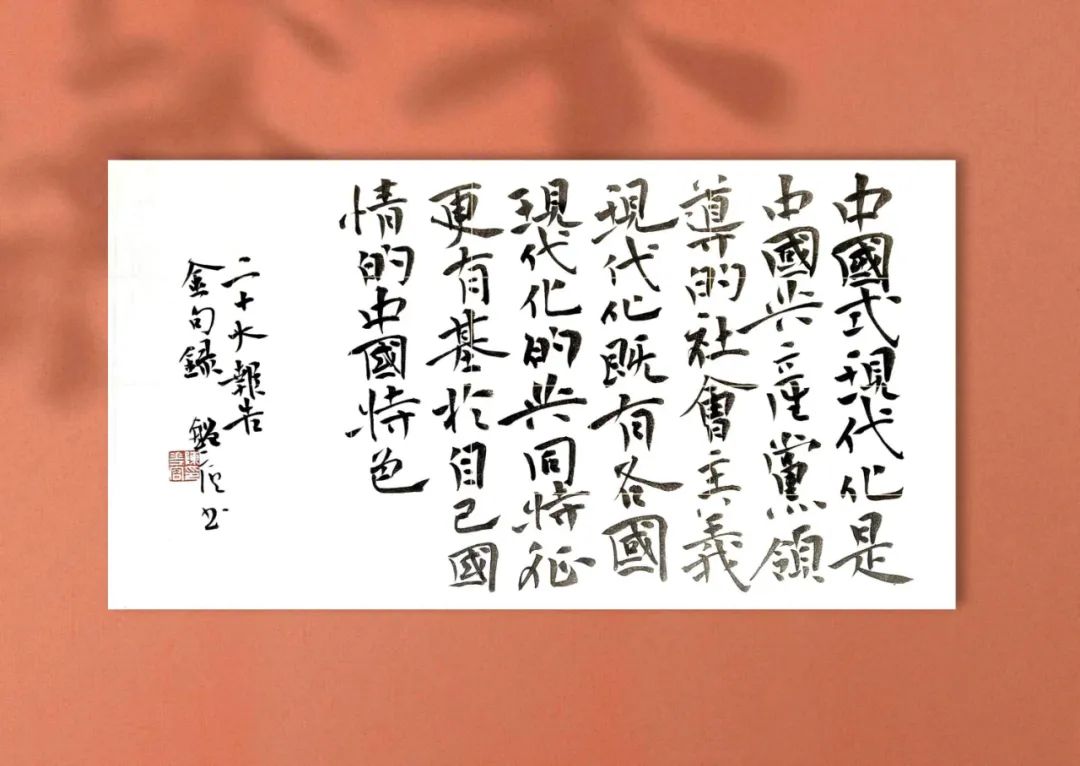 中國式現代化是
中國共産黨領
導的社會主義
現代化既有各國
現代化的共同特征
更有基於自己國
情的中國特色
二十大報告
金句録 书